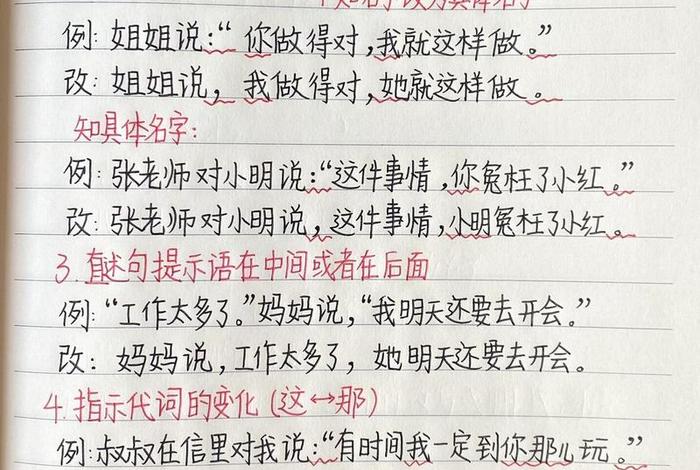 不知名字改为具体名字
例: 姐姐说:“你做得对,我就这样做。”
改: 姐姐说, 我做得对,她就这样做。
知具体名字:
例: 张老师对小明说:“这件事情,你冤枉了小红。”
改: 张老师对小明说,这件事情,小明冤枉了小红。
3.直述句提示语在中间或者在后面
例:“工作太多了。”妈妈说,“我明天还要去开会。”
改: 妈妈说,工作太多了, 她明天还要去开会。
4.指示代词的变化(这↔那)
例:叔叔在信里对我说:“有时间我一定到你那儿玩。”